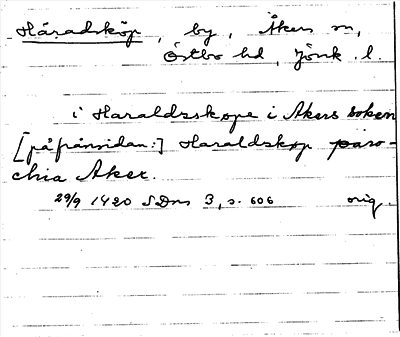 Häradsköp, by, Åkers sn,
Östbo hd, Jönk. l.
i Haraldzskope i Akers soken
[på frånsidan:] Haraldskøp paro-
chia Aker.
29/9 1420 SDns 3, s. 606 orig.